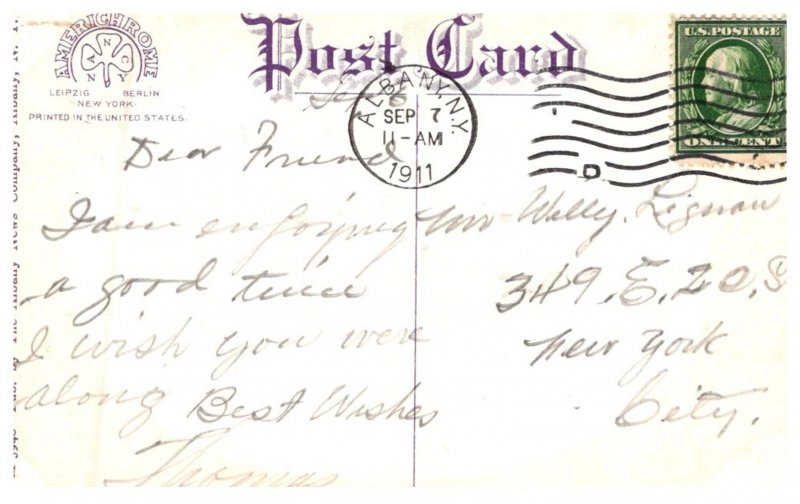 AMERICHROME
NANCY
LEIPZIG BERLIN
NEW YORK
PRINTED IN THE UNITED STATES.
Post Card
U.S. POSTAGE
ONE CENT
ALBANY, N.Y.
SEP 7
11-AM
1911
D
Dear Friend
I am enjoying
a good time
I wish you were
along Best Wishes
Thomas
Mr Willy. Ligman
349. E. 20. S
New York
City.
Pub. by The Albany News Company, Albany, N. Y.